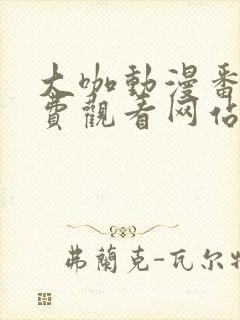 大咖動漫番
費觀看网佔
弗蘭克-瓦尔特